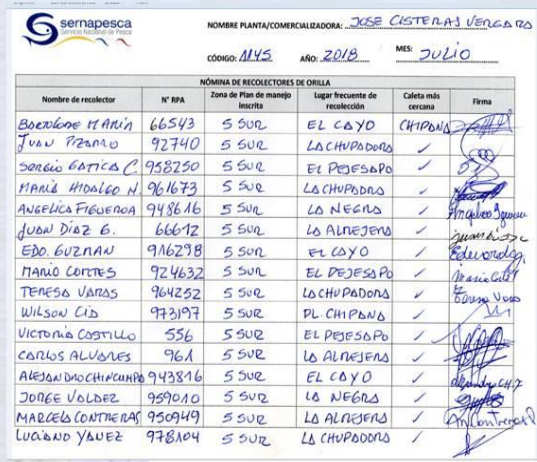 sernapesca
Servicio Nacional de Pesca
NOMBRE PLANTA/COMERCIALIZADORA: JOSE CISTERNAS VERGARA
CÓDIGO: 1145 AÑO: 2018 MES: JULIO
NÓMINA DE RECOLECTORES DE ORILLA
Nombre de recolector N° RPA Zona de Plan de manejo inscrita Lugar frecuente de recolección Caleta más cercana Firma
BARTOLOME MARIN 66543 5 SUR EL CAYO CHIPANA
JUAN PIZARRO 92740 5 SUR LA CHUPADORA ✓
SERGIO GATICA C. 958250 5 SUR EL PEJESAPO ✓
MARIA HIDALGO N. 961673 5 SUR LA CHUPADORA ✓
ANGELICA FIGUEROA 948616 5 SUR LA NEGRA ✓ Angelica
JUAN DIAZ G. 66612 5 SUR LA ALMEJERA ✓ Juan Diaz
EDO. GUZMAN 916298 5 SUR EL CAYO ✓ Eduardo G.
MARIO CORTES 924632 5 SUR EL PEJESAPO ✓ Mario
TERESA VARAS 964252 5 SUR LA CHUPADORA ✓ Teresa Varas
WILSON CID 973197 5 SUR PL. CHIPANA ✓
VICTORIA CASTILLO 556 5 SUR EL PEJESAPO ✓
CARLOS ALVARES 961 5 SUR LA ALMEJERA ✓
ALEJANDRO CHINCHUMPO 943816 5 SUR EL CAYO ✓
JORGE VALDEZ 959010 5 SUR LA NEGRA ✓
MARCELA CONTRERAS 950949 5 SUR LA ALMEJERA ✓ Contreras
LUCIANO YAÑEZ 978104 5 SUR LA CHUPADORA ✓